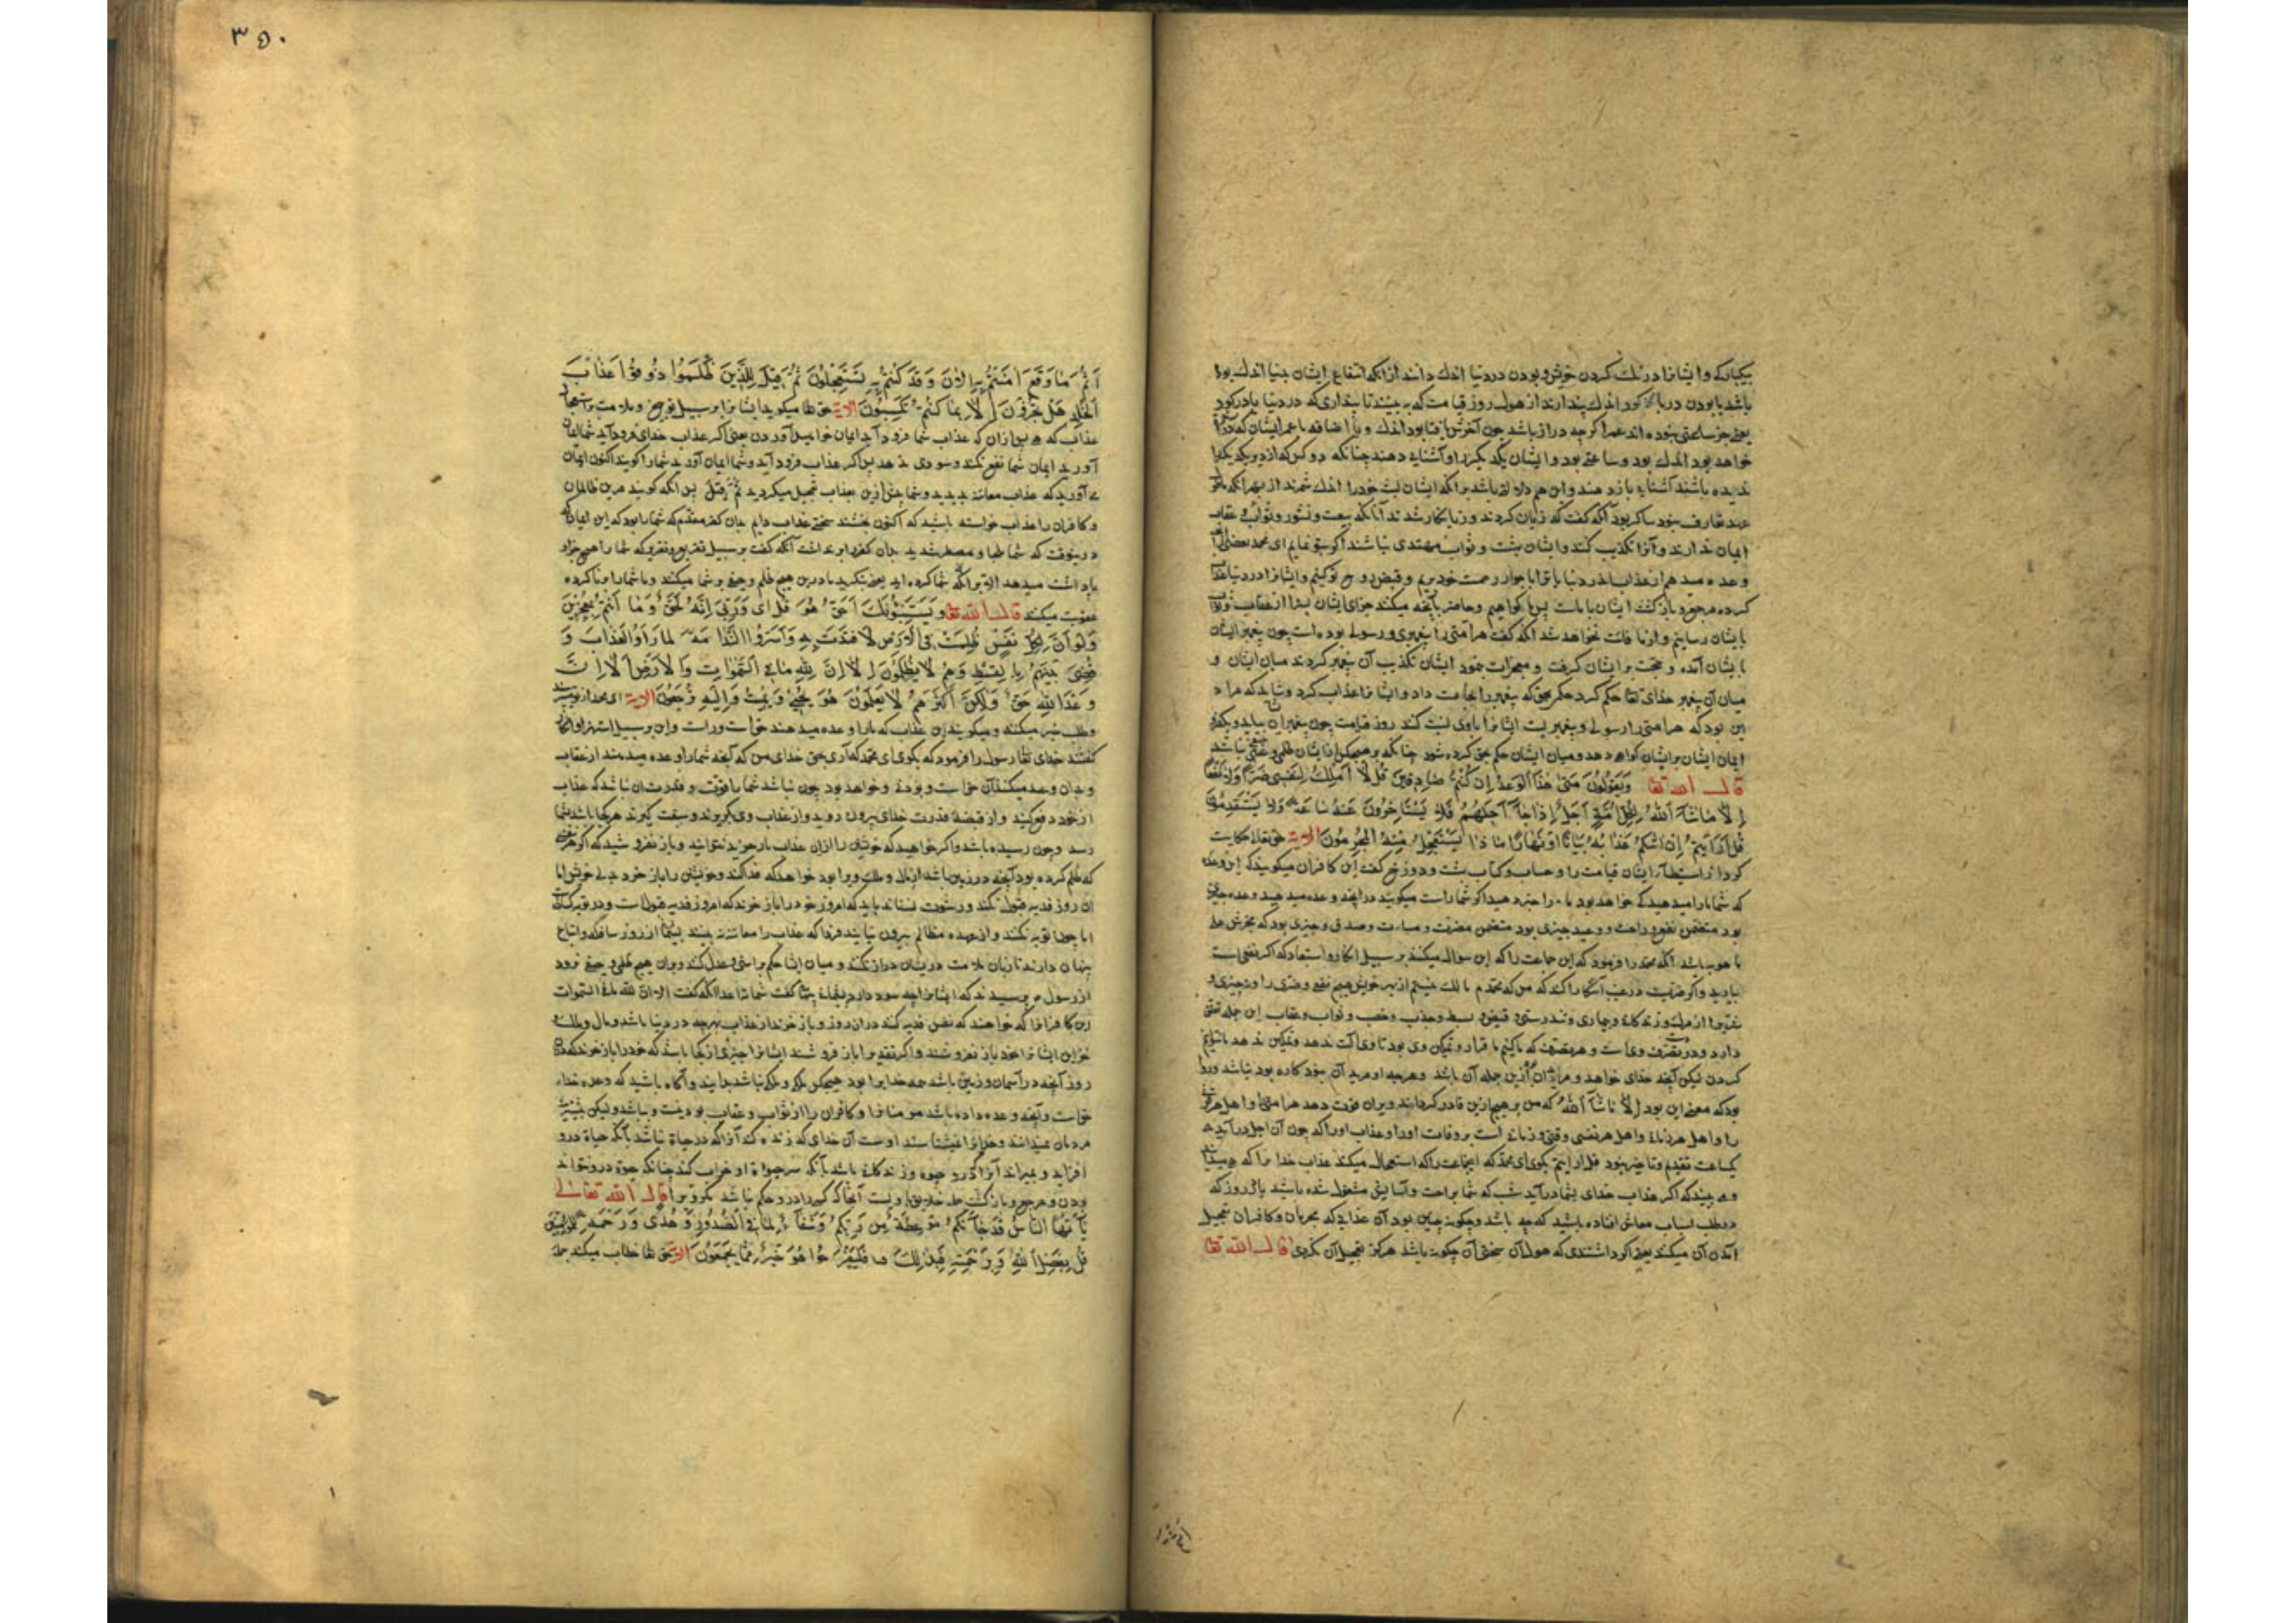 بیکبارکه وایشانرا درنك کردن خوش وبودن دردنیا اندك دانند ازانکه انتفاع ایشان بدنیا اندك بود
باشد یا بودن در کور اندك پندارند از هول روز قیامت که به بینند تا پنداری که در دنیا یا در کور
خواهد بود اندك بود وساعتی بود وایشان یکدیکر را وآشنایی دهند چنانکه دو کس که از دیر یکدیکر را
ندیده باشند آشنایی باز دهند واین هم دلالة باشد برآنکه ایشان لبث خود را اندك شمرند از بهر آنکه
آنکه کفت که زیان کردند وزیانکار شدند آنانکه ببعث ونشور وثواب وعقاب
ایمان ندارند وآنرا تکذیب کنند وایشان ببهشت وثواب مهتدی نباشند اکر بتو نمایم ای محمد بعضی
وعده میدهم از عذاب اندر دنیا یا ترا با جوار رحمت خود بریم وقبض روح تو کنیم وایشانرا در دنیا
کرده مرجع وبازکشت ایشان با ماست پس ما کواهیم وحاضر بآنچه میکنند جزای ایشان بسزا از عقاب
بایشان رسانیم واز ما فائت نخواهد شد آنکه کفت هر امتی را پیغمبری ورسولی بوده است چون پیغمبر ایشان
بایشان آمد وحجت بر ایشان کرفت ومعجزات نمود ایشان تکذیب آن پیغمبر کردند میان ایشان و
میان آن پیغمبر خدای تعا حکم کرد حکم بحق که پیغمبر را نجات داد وایشانرا عذاب کرد وشاید که مراد
این بود که هر امتی را رسولی وپیغمبریست ایشانرا باوی نسبت کنند روز قیامت چون پیغمبران بیاید وبکفر
ایمان ایشان بر ایشان کواهی دهد ومیان ایشان حکم بحق کرده شود چنانکه بر هیچکس از ایشان ظلمی وحیفی نباشد
قال الله تعا وَيَقُولُونَ مَتىٰ هٰذَا الْوَعْدُ اِنْ كُنْتُمْ صَادِقِينَ قُلْ لَا اَمْلِكُ لِنَفْسِي ضَرًّا وَلَا نَفْعًا
اِلَّا مَا شَآءَ اللهُ لِكُلِّ اُمَّةٍ اَجَلٌ اِذَا جَآءَ اَجَلُهُمْ فَلَا يَسْتَأْخِرُونَ عَنْهُ سَاعَةً وَلَا يَسْتَقْدِمُونَ
قُلْ اَرَاَيْتُمْ اِنْ اَتٰيكُمْ عَذَابُهُ بَيَاتًا اَوْ نَهَارًا مَا ذَا يَسْتَعْجِلُ مِنْهُ الْمُجْرِمُونَ الایة حق تعا حکایت
کرد از استبطاء ایشان قیامت را وحساب وکتاب بهشت ودوزخ کفت این کافران میکویند که این وعده
که شما ما را میدهید کی خواهد بود ما را خبر دهید اکر شما راست میکویید درآنچه وعده میدهید وعده چیزی
بود متضمن نفع وراحت ووعید چیزی بود متضمن مضرت ومساءت وصدق وچیزی بود که مخبرش علی
ما هو به باشد آنکه محمد را فرمود که این جماعت را که این سؤال میکنند بر سبیل انکار واستبعاد که اکر نفعی است
بیارید واکر مضرتیست در غیب آشکارا کنید که من که محمدم مالك نیستم از بهر خویش هیچ نفع وضری را
دارد ودر تصرف وی است وهر تصرف که ما کنیم با قرار وتمکین وی بود تا وی آلت ندهد وتمکین ندهد ما نتوانیم
کردن لیکن آنچه خدای خواهد ومرا ازین جمله آن باشد وهرچه او مرید آن نبود کاره بود نباشد
بود که معنی این بود اِلَّا مَا شَآءَ اللهُ که من بر هیچ ازین قادر کرداند وبران قوت دهد هر امتی واهل هر
را واهل هر زمانی واهل هر نفسی وقتی وزمانی است بر وفات او را وعذاب او را که چون آن اجل درآید
یکساعت تقدیم وتاخیر نبود قل ارایتم بکوی ای محمد که این جماعت را که استعجال میکنند عذاب خدا را که
می بینید که اکر عذاب خدای بشما درآید شب که شما براحت وآسایش مشغول شده باشید یا بروز که
در طلب اسباب معاش افتاده باشید که چه باشد وچکونه چیزی بود آن عذابی که مجرمان وکافران تعجیل
آمدن آن میکنند یعنی اکر دانستندی که هول آن سختی آن چکونه باشد هرکز تعجیل آن نکردی قال الله تعا
۳۵۰
اَثُمَّ اِذَا مَا وَقَعَ اٰمَنْتُمْ بِهِ اٰلْاٰنَ وَقَدْ كُنْتُمْ بِهِ تَسْتَعْجِلُونَ ثُمَّ قِيلَ لِلَّذِينَ ظَلَمُوا ذُوقُوا عَذَابَ
الْخُلْدِ هَلْ تُجْزَوْنَ اِلَّا بِمَا كُنْتُمْ تَكْسِبُونَ الایة حق تعا میکوید ایشانرا بر سبیل توبیخ وملامت
عذاب که پس ازان که عذاب شما فرود آید ایمان خواهید آوردن یعنی اکر عذاب خدای فرود آید شما ایمان
آورید ایمان شما نفع نکند وسودی ندهد پس اکر عذاب فرود آید وشما ایمان آورید شما را کویند اکنون ایمان
می آورید که عذاب معاینه بدیدید وشما پیش ازین بعذاب تعجیل میکردید ثُمَّ قِيلَ پس آنکه کویند مرین ظالمان
وکافران را عذاب خواسته باشید که اکنون بچشید سختی عذاب دایم بدان کفر مقدم که شما را بود که این ایمان
درینوقت که شما ملجا ومضطر شدید بدان کفر برنداشت آنکه کفت بر سبیل تقریع وتقریر که شما را هیچ جزاء
پاداشت میدهد الا برآنکه شما کرده اید یعنی نکرید تا درین هیچ ظلم وحیف بر شما میکنند وما شما را بنا کرده
عقوبت میکنند قال الله تعا وَيَسْتَنْبِؤُنَكَ اَحَقٌّ هُوَ قُلْ اِى وَرَبّى اِنَّهُ لَحَقٌّ وَمَا اَنْتُمْ بِمُعْجِزِينَ
وَلَوْ اَنَّ لِكُلِّ نَفْسٍ ظَلَمَتْ مَا فِى الْاَرْضِ لَافْتَدَتْ بِهِ وَاَسَرُّوا النَّدَامَةَ لَمَّا رَاَوُا الْعَذَابَ وَ
قُضِىَ بَيْنَهُمْ بِالْقِسْطِ وَهُمْ لَا يُظْلَمُونَ اَلَا اِنَّ لِلّٰهِ مَا فِى السَّمٰوَاتِ وَالْاَرْضِ اَلَا اِنَّ
وَعْدَ اللهِ حَقٌّ وَلٰكِنَّ اَكْثَرَهُمْ لَا يَعْلَمُونَ هُوَ يُحْيِى وَيُمِيتُ وَاِلَيْهِ تُرْجَعُونَ الایة ای محمد از تو
وطلب خبر میکنند ومیکویند این عذاب که ما را وعده میدهند حق است وراست واین بر سبیل استهزا وانکار
کفتند خدای تعا رسول را فرمود که بکوی ای محمد که آری بحق خدای من که آنچه شما را وعده میدهند از عقاب
وبدان وعید میکنند آن حق است وبوده وخواهد بود چون نباشد شما را قوت وقدرت آن نباشد که عذاب
از خود دفع کنید واز قبضه قدرت خدای بیرون روید واز عذاب وی بکریزند وسبقت کیرند هر کجا باشد بشما
رسد وچون رسیده باشد واکر خواهید که خویشتن را ازان عذاب باز خرید نتوانید وباز نفروشید که اکر هر
که ظلم کرده بود آنچه در زمین باشد از مال وملك ویرا بود خواهد که فدا کند وخویشتن را باز خرد بدل خویش اما
آن روز فدیه قبول نکنند ورشوت نستانند باید که امروز خود را باز خرند که امروز فدیه قبولست
اما چون توبه نکنند واز عهده مظالم بیرون نیایند فردا که عذاب را معاینه بینند پشیمان از روز سافکه واتباع
پنهان دارند تا زبان ملامت در ایشان دراز نکنند ومیان ایشان حکم براستی وعدل کنند وبران هیچ ظلمی وحیفی نرود
از رسول پرسیدند که ایشانرا چه سود دارد پشیمانی کفت شماتة اعدا آنکه کفت الا ان لله ما فی السموات
این کافرانرا که خواهند که نفس فدیه کنند دران روز وباز خرند از عذاب بهرچه در دنیا باشد ومال وملك
خزاین ایشانرا خود باز نفروشند واکر تقدیرا باز فروشند ایشانرا چیزی از کجا باشد که خود را باز خرند که
روز آنچه در آسمان وزمین باشد همه خدایرا بود هیچکس ملك وملکی نباشد بدانید وآکاه باشید که وعده خدای
حق است وآنچه وعده داده باشد مومنانرا وکافران را از ثواب وعقاب بودنیست وباشد ولیکن بیشتر
مردمان نمیدانند وخدایرا نشناسند اوست آن خدای که زنده کند آنرا که در حیاة نباشد بآنکه حیاة درو
افزاید وبمیراند آنرا که درو حیوة وزندکانی باشد بآنکه سرحیواة او خراب کند چنانکه حیوة درو نتواند
بودن ومرجع وبازکشت جمله خلایق باویست آنجا که کس را درو حکم نباشد مکر او را قال الله تعالی
يَا اَيُّهَا النَّاسُ قَدْ جَآءَتْكُمْ مَوْعِظَةٌ مِنْ رَبِّكُمْ وَشِفَآءٌ لِمَا فِى الصُّدُورِ وَهُدًى وَرَحْمَةٌ لِلْمُؤْمِنِينَ
قُلْ بِفَضْلِ اللهِ وَبِرَحْمَتِهِ فَبِذٰلِكَ فَلْيَفْرَحُوا هُوَ خَيْرٌ مِمَّا يَجْمَعُونَ الایة حق تعا خطاب میکند جمله